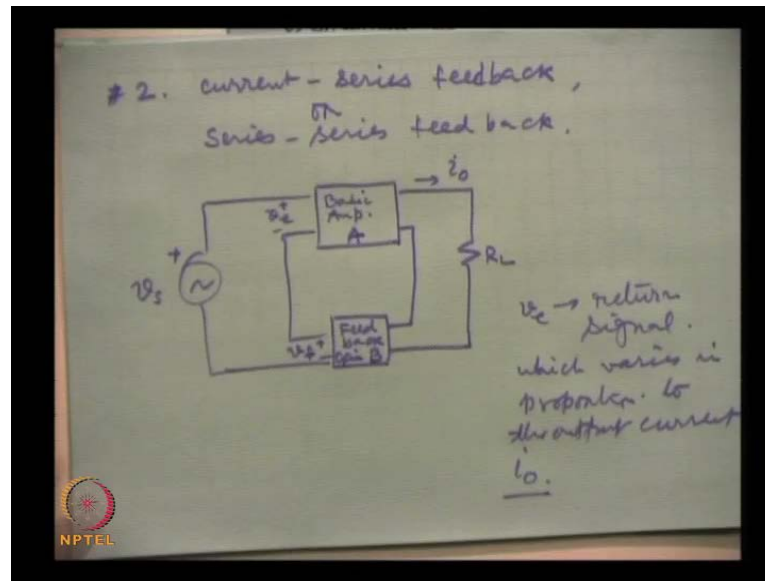 # 2. current - series feedback,
or
Series - series feed back.
→ i₀
Basic
Amp.
A
+
vₑ
-
+
vₛ
~
R_L
Feed
back
B
v_f +
-
vₑ → return
signal.
which varies in
proportion. to
the output current
i₀.
NPTEL